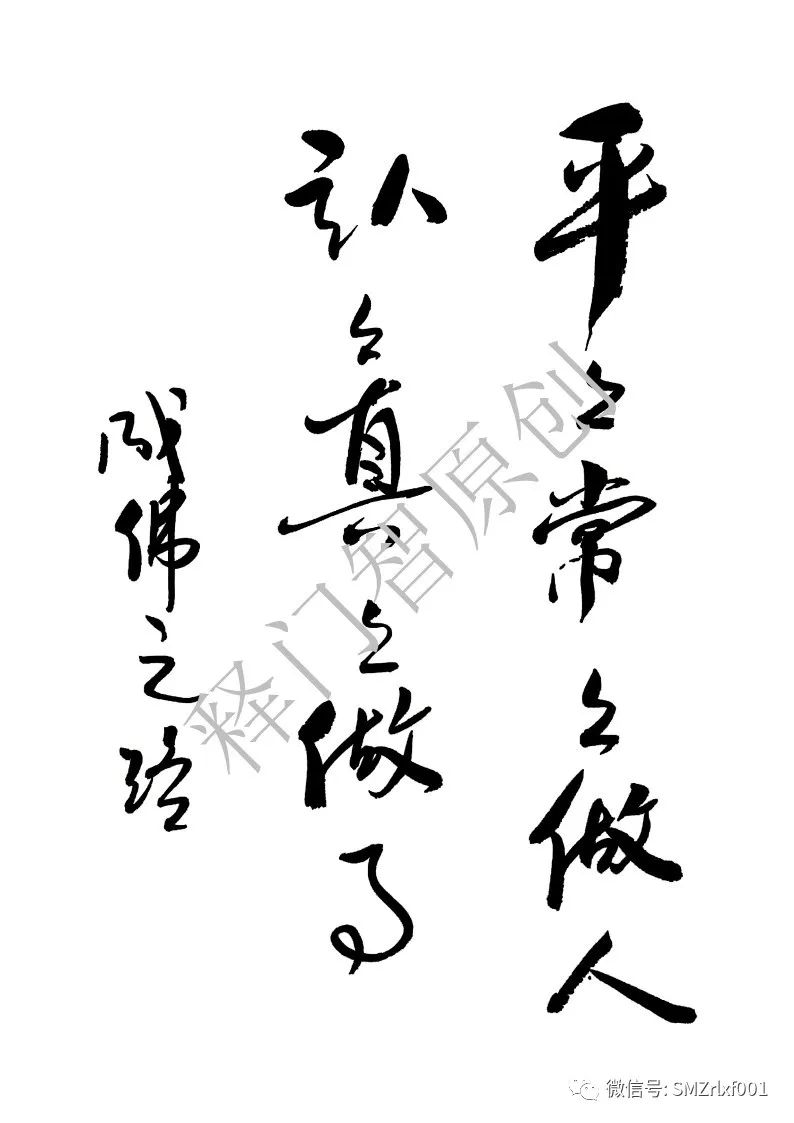 平々常々做人
认々真々做事
成佛之路
释门智原创
微信号: SMZrlxf001